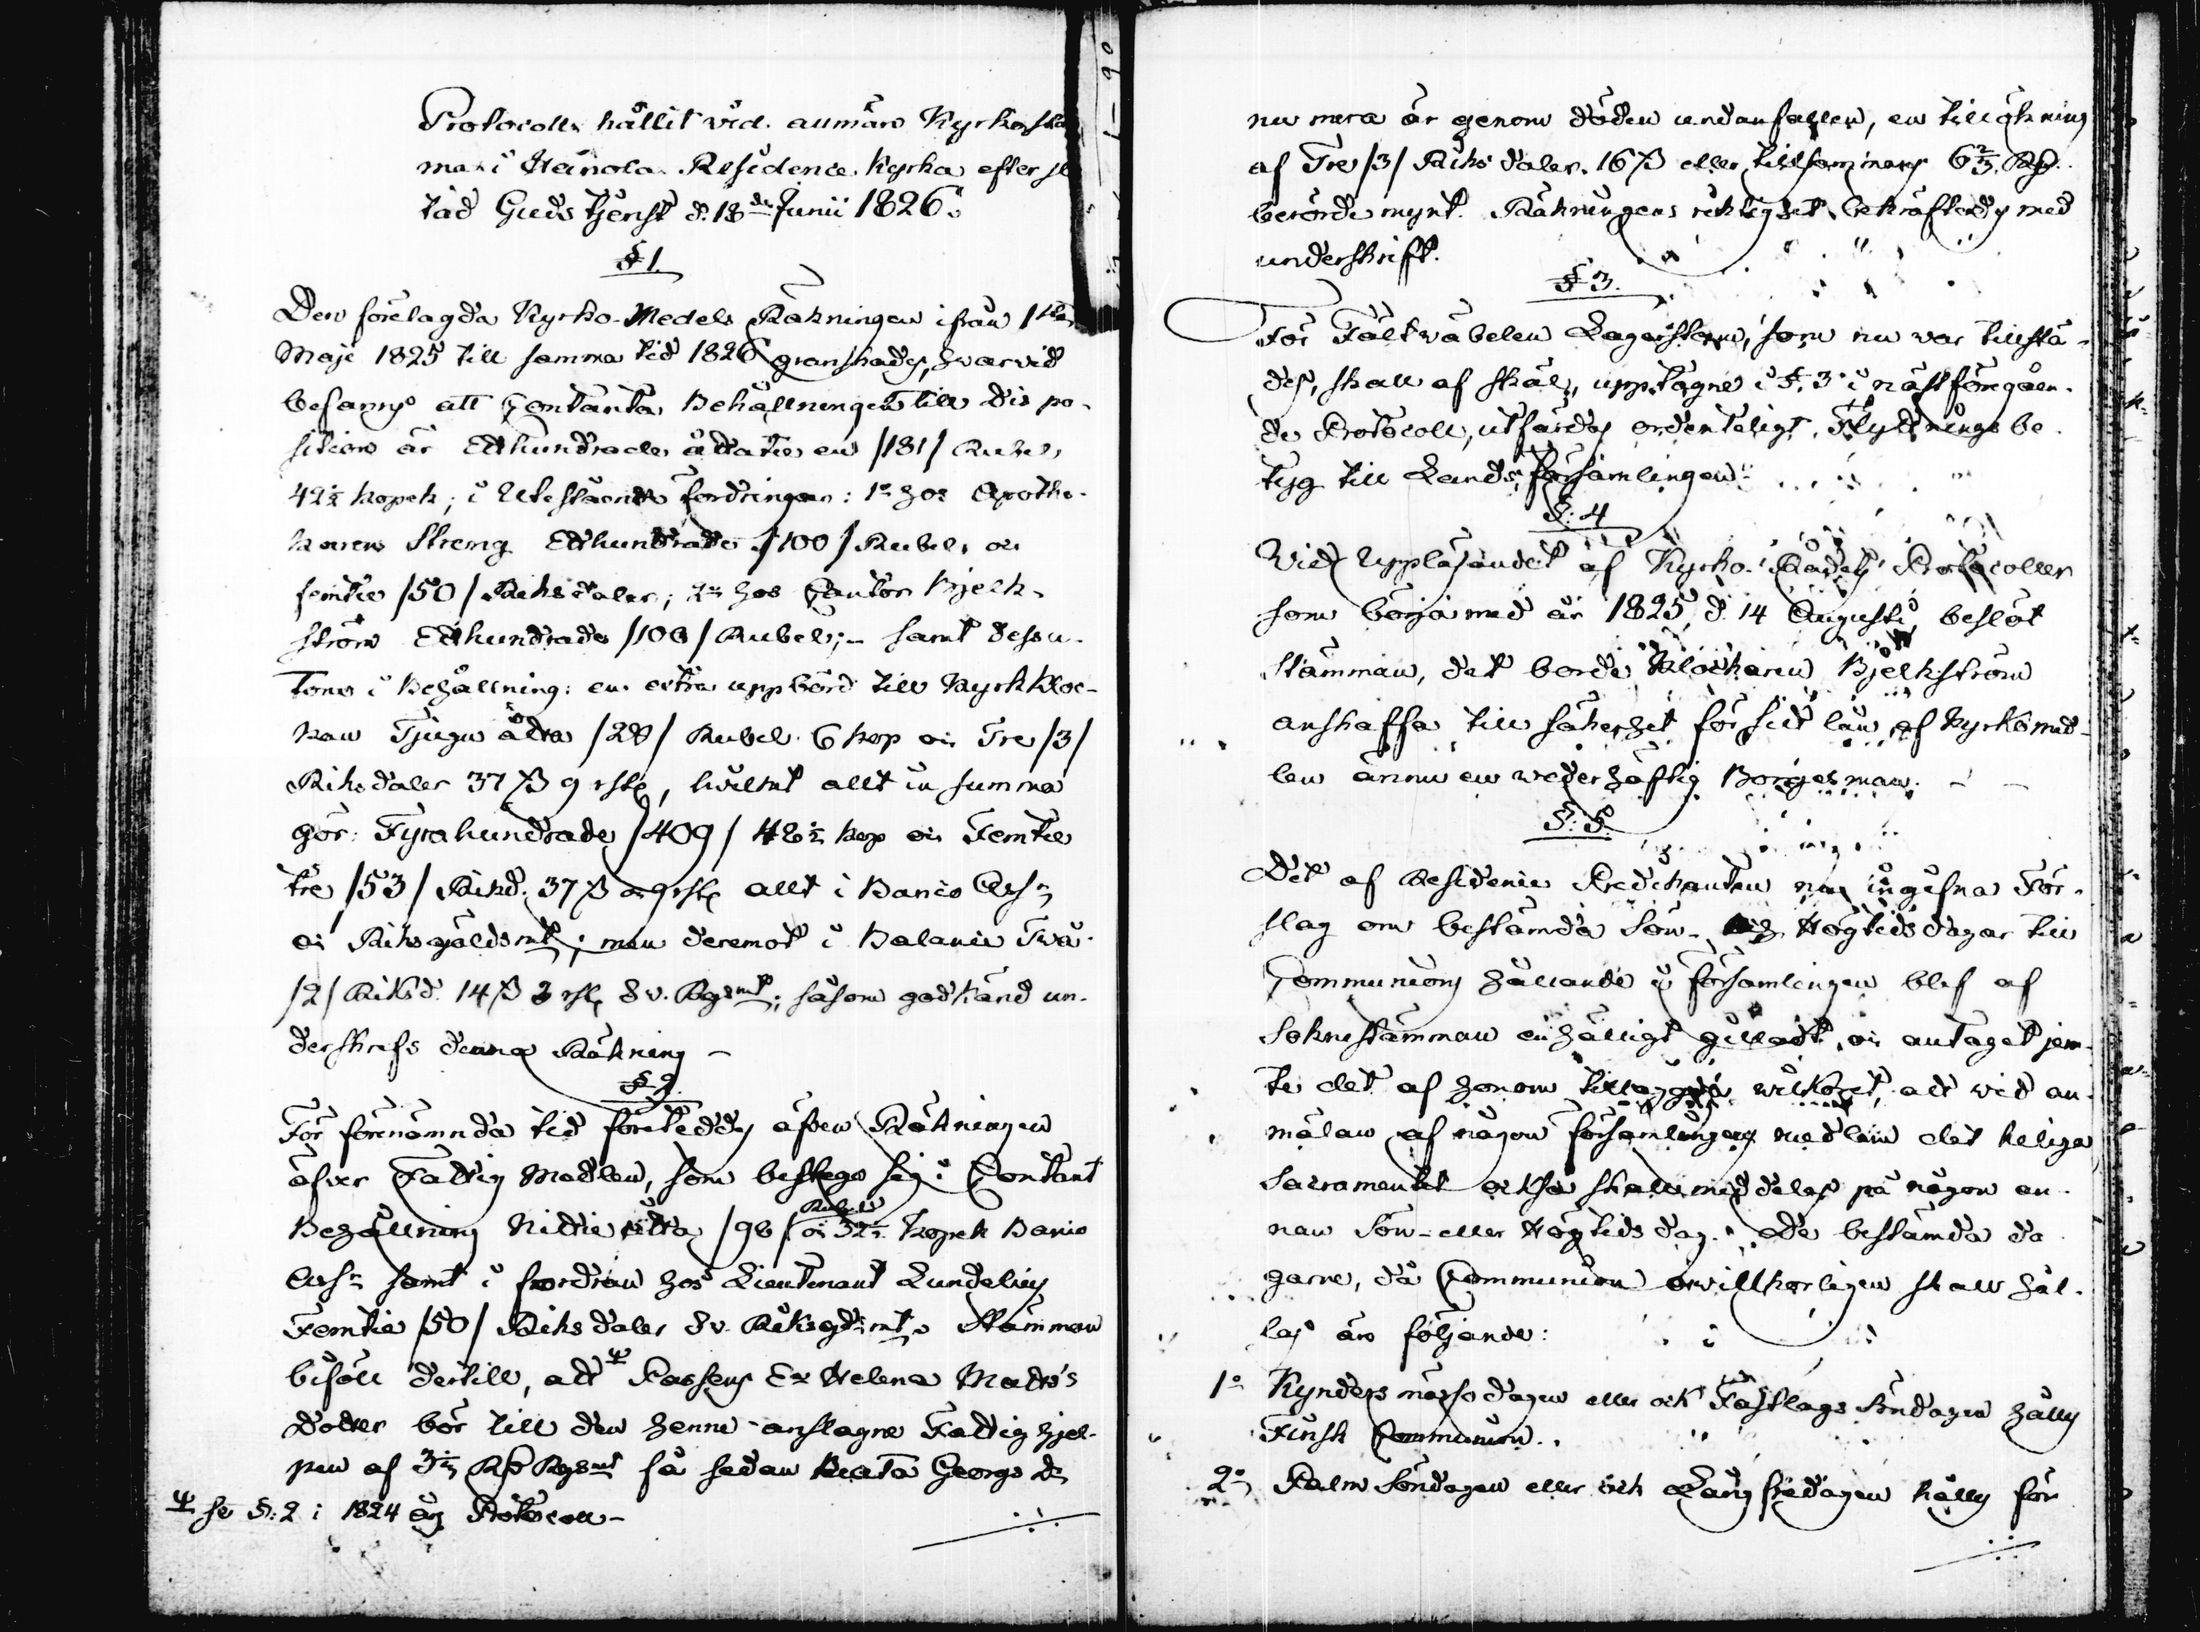 Protocoll, hållit vid allmän Kyrkostä
ma i Heinola Residence kyrka efter sl
tad Gudstjenst d. 18de Junii 1826.
§ 1.
Den förelagda Kyrko-Medels Räkningen ifrån 1sta
Maji 1825 till samma tid 1826 granskades, hvarvid
befanns att Contanta Behållningen till dispo-
sition är Etthundrade åttatio en /181/ Rubel,
42½ kopek; i Utestående fordringar: 1o hos Apothe-
karen Streng Etthundrade /100/ Rubel, och
femtio /50/ Riksdaler; 2o hos Cantor Bjelk-
ström Etthundrade /100/ Rubel; – samt dessu-
tom i Behållning: en extra uppbörd till Kyrkkloc-
kan Tjugu åtta /28/ Rubel 6 kop och Tre /3/
Riksdaler 37 ß 9 rst, hvilket allt in summa
gör: Fyrahundrade /409/ 48½ kop och Femtio
tre /53/ Riksd. 37 ß 9 rst allt i Banco Ass:r
och Riksgäldsmt; men deremot i Balance Två
/2/ Riksd. 14 ß 3 rst Sv. Rgsmt; såsom godkänd un-
derskrefs denna Räkning –
§ 2.
För förenämnda tid företeddes äfven Räkningen
öfver Fattig Medlen, som besteg sig i Contant
Behållning Nittio åtta /98/ Rubel och 32½ kopek Banco
Ass:r samt i fordran hos Lieutenant Lundelius
Femtio /50/ Riksdaler Sv. Riksgd:smt. Stämman
biföll dertill, att # Passens E:a Helena Matts
dotter bör till den henne anslagne Fattighjel-
pen af 3⅓ Rß Rgsmt få sedan Beata Georgs dr
# se §. 2 i 1824 års Protocoll –
nu mera är genom döden undanfallen, en tillökning
af Tre /3/ Riksdaler 16 ß eller tillsammans 6⅔ Rß
berörde mynt. Räkningens riktighet bekräftades med
underskrift.
§ 3.
För Fältväbelen Lagerstam, som nu var tillstä-
des, skall af skäl, upptagne i §. 3 i nästföregåen-
de Protocoll, utfärdas ordenteligt Flyttningsbe-
tyg till Landsförsamlingen.
§. 4
Vid Uppläsandet af Kyrko-Rådets Protocoller
som börja med år 1825 d. 14 Augusti, beslöt
Stämman, det borde Klockaren Bjelkström
anskaffa till säkerhet för sitt lån af Kyrkomed-
len ännu en vederhäftig Borgesman. – –
§. 5.
Det af Residence Predikanten nu ingifna För-
slag om bestämda Sön- och Högtidsdagar till
Communions hållande i församlingen blef af
Soknestämman enhälligt gilladt och antaget jem-
te det af honom tillaggda wilkoret, att vid an-
mälan af någon församlingens medlem det heliga
Sacramentet också skall meddelas på någon an-
nan Sön- eller Högtidsdag. De bestämda da
garne, då Communion ovillkorligen skall hål-
las äro följande:
1o Kyndersmässodagen eller ock Fastlags Söndagen hålls
Finsk Communion.
2o Palm Söndagen eller ock Långfredagen hålls för